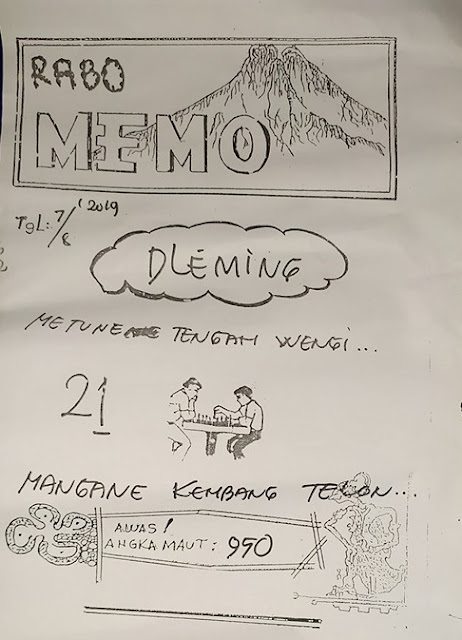 RABO
MEMO
TgL: 7/8 ' 2019
DLEMING
METUNE TENGAH WENGI...
21
MANGANE KEMBANG TELON...
AWAS!
ANGKA MAUT: 990